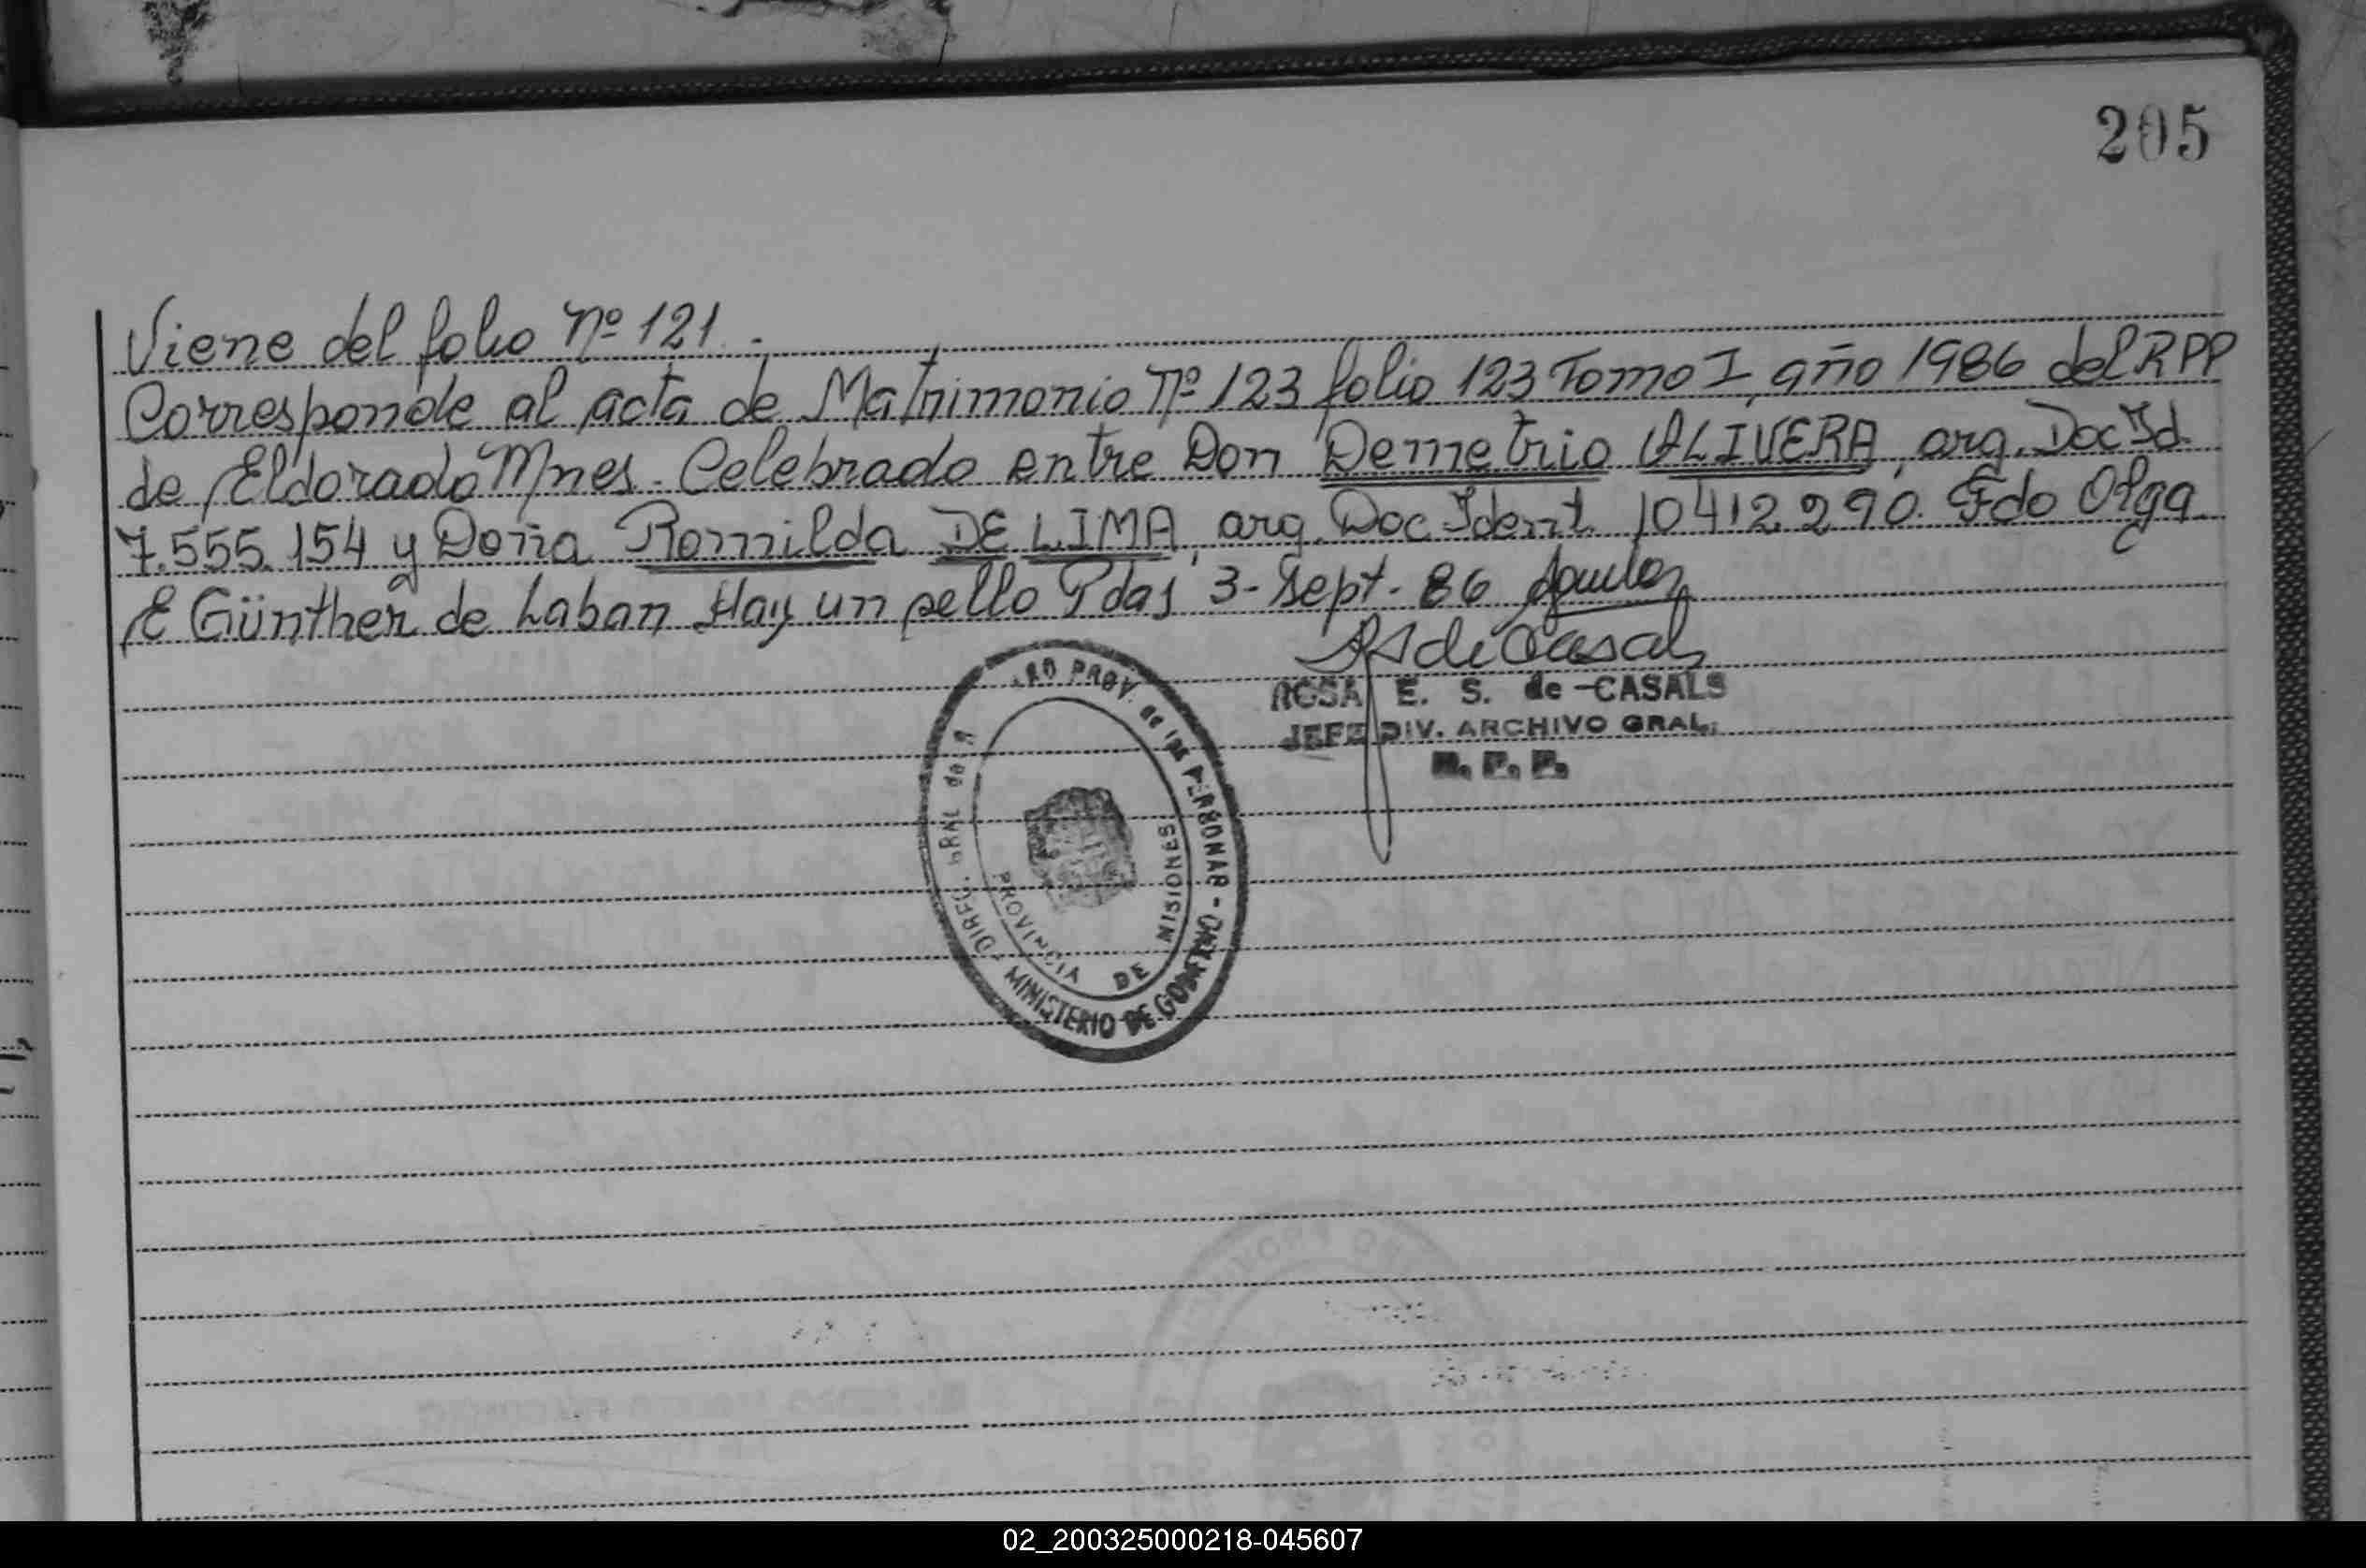 205
Viene del folio Nº 121.-
Corresponde al acta de Matrimonio Nº 123 folio 123 Tomo I, año 1986 del RPP
de Eldorado Mnes. Celebrado entre Don Demetrio OLIVERA, arg. Doc Id.
7.555.154 y Doña Romilda DE LIMA, arg. Doc Ident. 10412.290. Fdo Olga
E Günther de Laban Hay un sello Pdas 3-Sept-86
ROSA E. S. de CASALS
JEFE DIV. ARCHIVO GRAL.
R. P. P.
DIREC. GRAL de PROV. de las PERSONAS - MINISTERIO DE GOBIERNO
PROVINCIA DE MISIONES
02_200325000218-045607